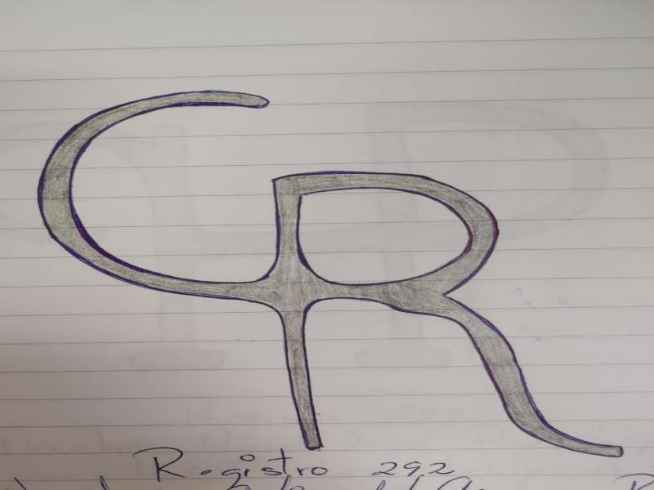 CR
Registro 292